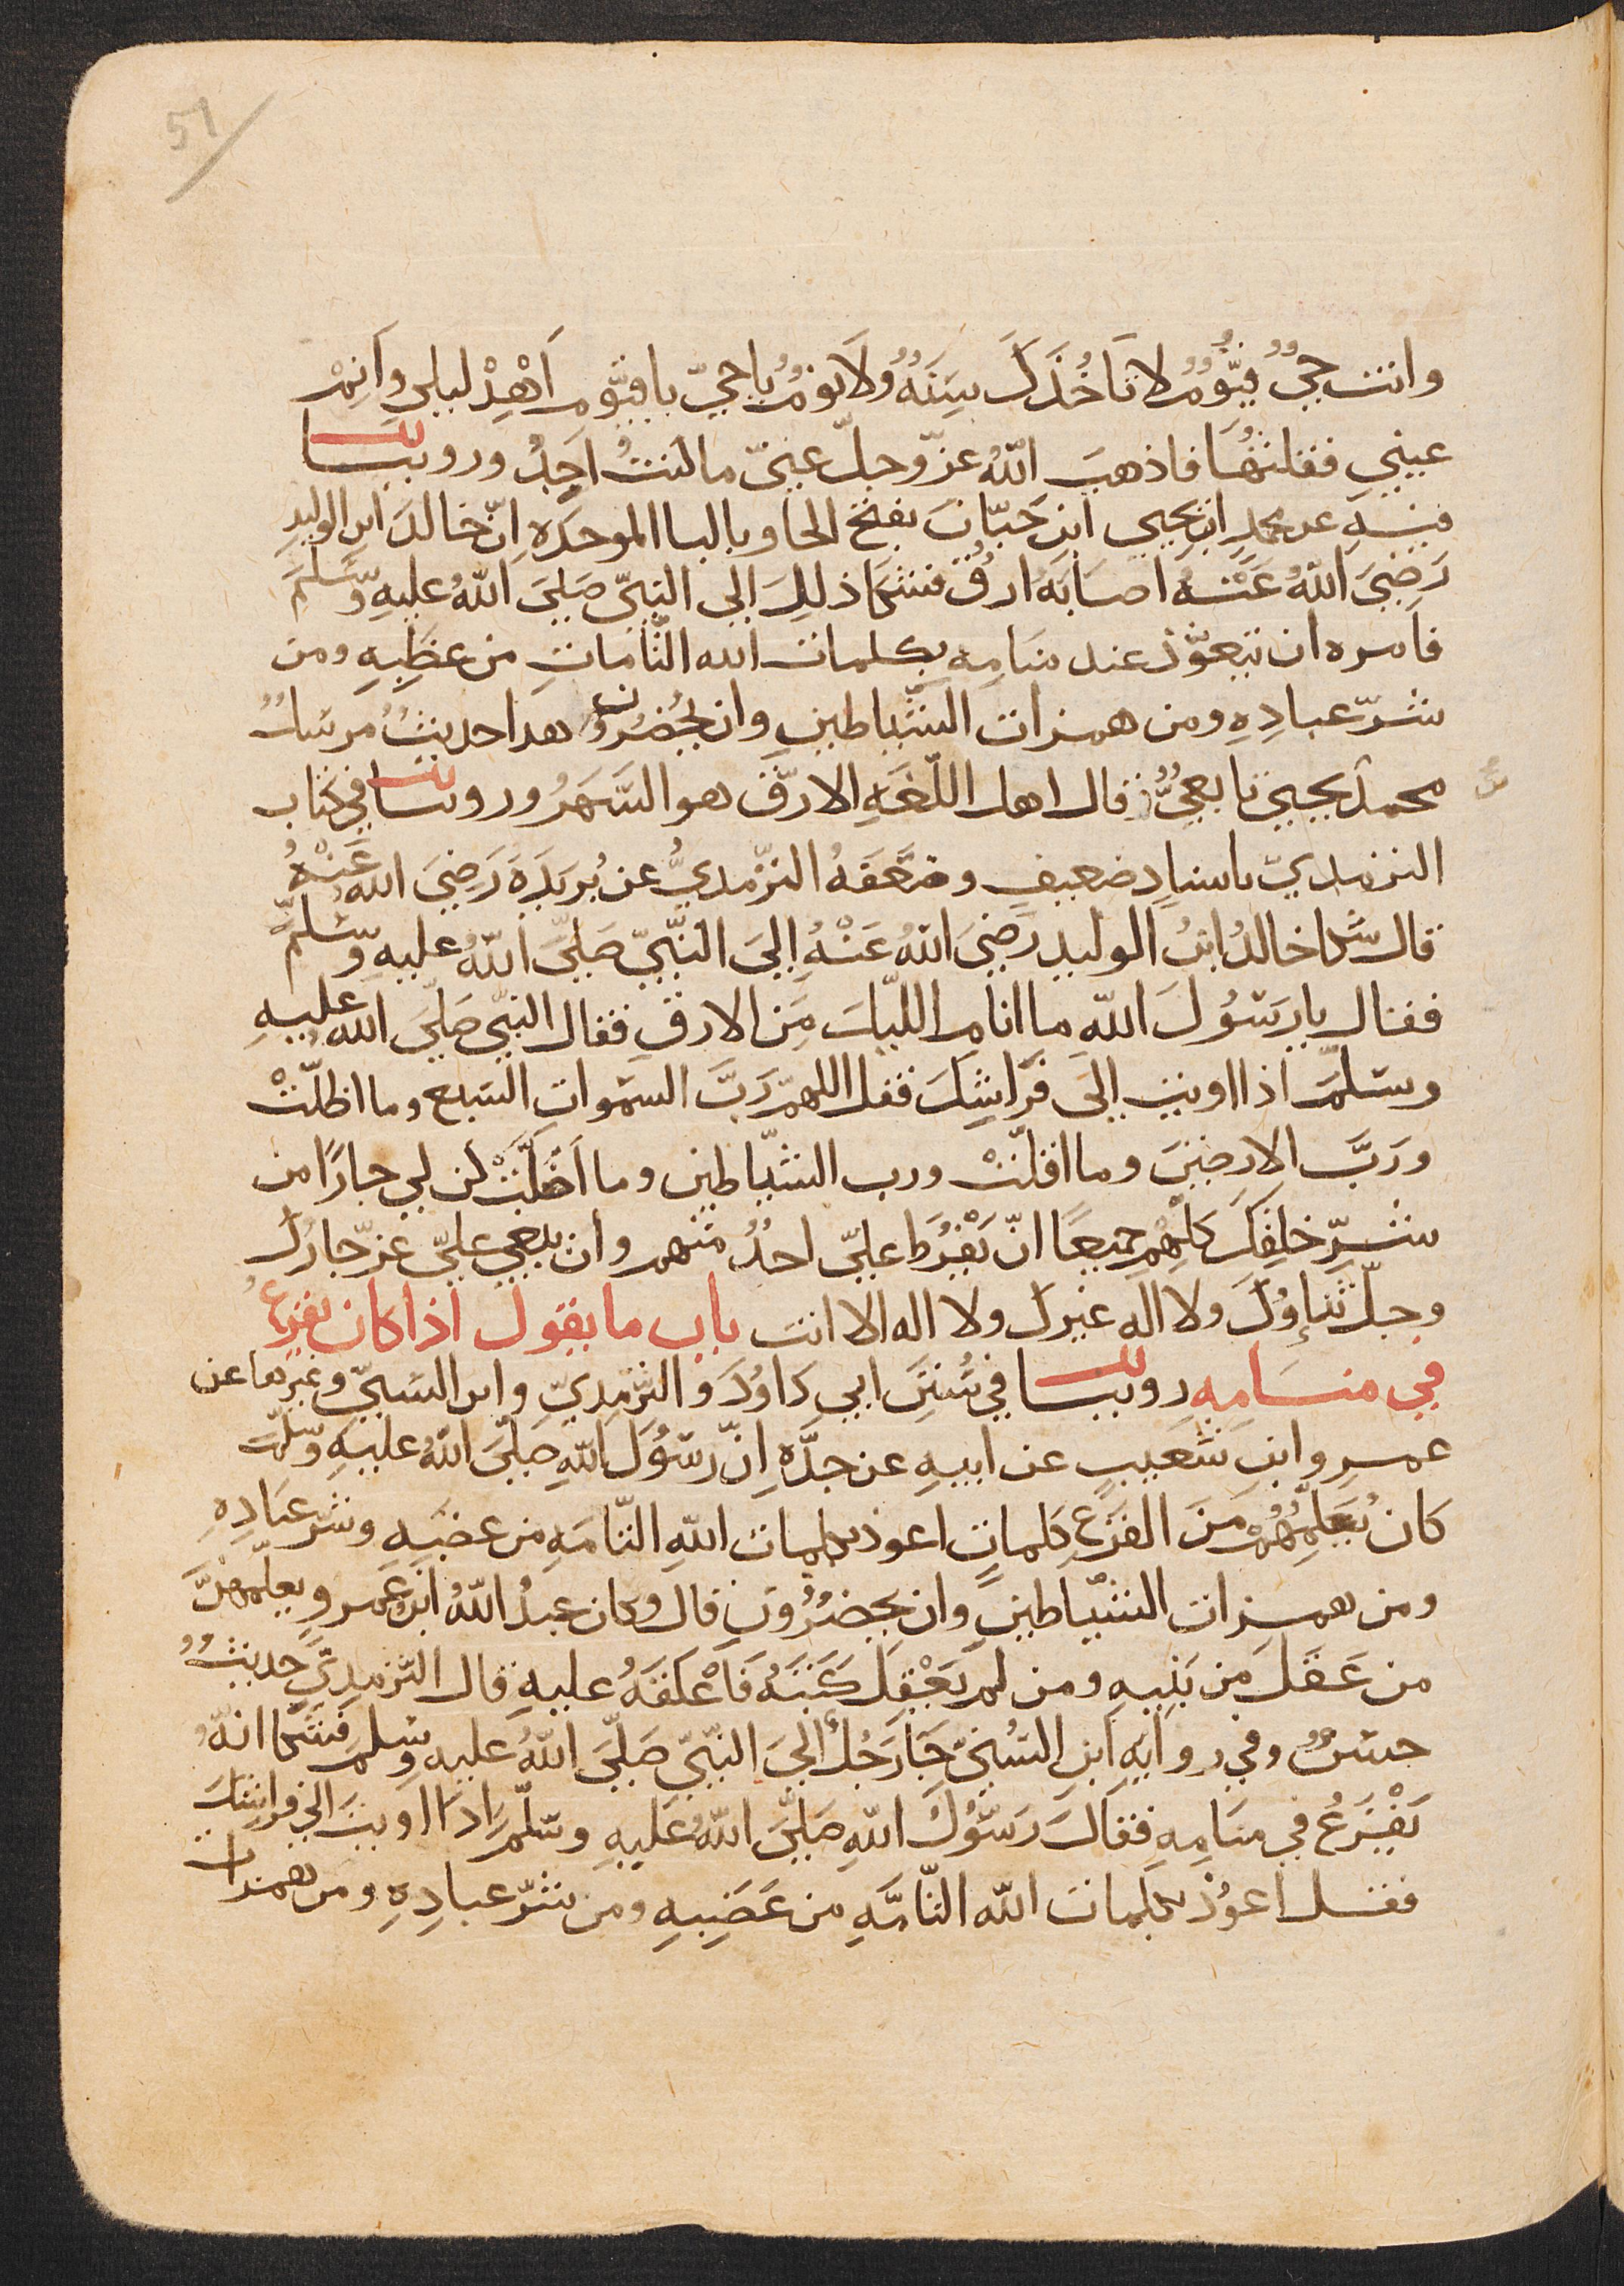 51
وانت حيٌّ قيُّومٌ لا تَاخُذكَ سِنَةٌ ولَا نومٌ يا حيّ يا قيّوم اَهْدِ ليلي واَنِمْ
عيني فقلتُهَا فاذهبَ اللّهُ عزّ وجلّ عنّي ما كنتُ اجِدُ وروينا
فيهِ عن محمدِ ابنِ يحيي ابنِ حَبّانَ بفتح الحا وبالبا الموحدَه اِنّ خالدَ ابن الوليدِ
رَضِيَ اللّهُ عَنْهُ اصَابَهُ ارقٌ فشكَا ذلِكَ الي النبيّ صَليَ اللّهُ عليهِ وَسَّلمَ
فاَمره ان يتعوّذ عند منَامِهِ بكلمات الله التّامَاتِ من غظَبِهِ ومن
شرّ عبادِهِ ومن همزات الشّياطينِ وان يحْضُرُونِ هدا حديثٌ مرسَلٌ
محمدٌ يحيي تابعيٌّ قال اهل اللّغَهِ الارّق هو السَّهَرُ وروينا في كتاب
الترمديّ باسنادِ ضعيفٍ وضعّفَهُ الترّمديُّ عن بُريَدَةَ رَضِيَ الله عَنْهُ
قال شكا خالدُ ابنُ الوليدِ رَضِيَ اللهُ عَنْهُ اِليَ النّبيّ صَليَّ اللّهُ عليهِ وسّلمَّ
فقال يا رسُولَ اللّه ما انام اللّيلَ مِنَ الارقِ فقال النبيّ صَليَّ الله عليهِ
وسَلمَّ اذا اويت اِليَ فَراشِكَ فقل اللهمّ رَبَّ السموات السَبع وما اظلّتْ
ورَبَّ الارضينَ وما اقلّتْ ورب الشيّاطين وما اَضَلّتْ كن لي جارًا من
شَرِّ خلقِكَ كلّهِمِ جميعًا انّ يَفْرُط عليّ احدٌ منهم وان يبغي عليّ عزّ جارُك
وجلّ ثناوُكَ ولا اله غيرك ولا اله الا انت باب ما يقول اذا كان يفزع
في منَامِهِ روينا في سُننِ ابي دَاوُدَ والترّمِديّ وابن السُنيّ وغيرهما عن
عمرِو ابنِ شعَيبٍ عن ابيهِ عن جدّهِ اِنّ رسَوُلَ اللّهِ صَليّ اللّهُ عليهِ وَسّلمَّ
كان يُعَلِّمُهُمْ مِنَ الفزَعِ كلماتٍ اعوذ بكلمات اللّهِ التّامّهِ من غضبَهِ وشر عبَادِهِ
ومن همزات الشيّاطينِ وان يحضُرُونِ قال وكان عبدُ اللّهُ ابن عَمرٍو يعلّمَهُنَّ
من عَقَلَ مِن بَنِيهِ ومن لم يَعْقِلَ كتَبَهُ فَاَعْلَقَهُ عليهِ قال الترّمدي حديثٌ
حسَنٌ وفي روايهِ ابنِ السُنيّ جَا رَجُلٌ اليَ النّبيّ صَليَّ اللّهُ عليهِ وسّلم فشكا انّهُ
يَفْزَعُ في منَامِهِ فقَالَ رسَّوُلُ اللّهِ صَليَّ اللّهُ عَليهِ وسّلمَّ ادا اويتَ الي فراشِكَ
فقل اعوُذ بكلمات اللّه التّامّهِ من غَضَبِهِ ومن شرّ عبادِهِ ومن همزات